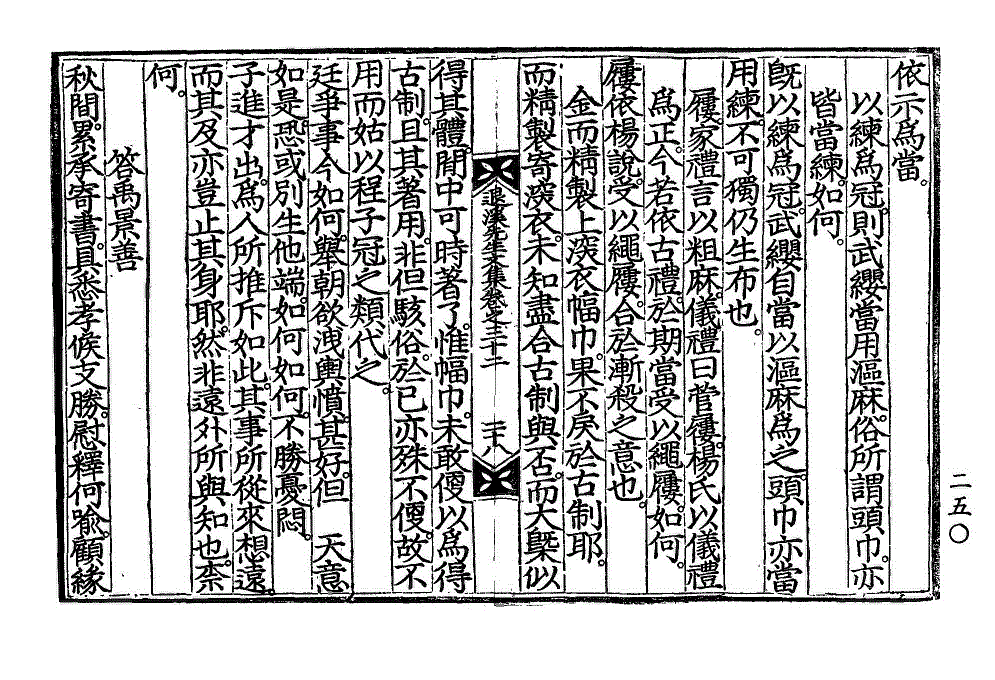 依示為當。
以練為冠。則武纓當用漚麻。俗所謂頭巾。亦
皆當練。如何。
旣以練為冠。武纓自當以漚麻為之。頭巾亦當
用練。不可獨仍生布也。
屨家禮言以粗麻。儀禮曰菅屨。楊氏以儀禮
為正。今若依古禮。於期當受以繩屨。如何。
屨依楊說。受以繩屨。合於漸殺之意也。
金而精製上深衣幅巾。果不戾於古制耶。
而精製寄深衣。未知盡合古制與否。而大槩似
退溪先生文集卷之三十二
二十八
得其體。閒中可時著了。惟幅巾。未敢便以為得
古制。且其著用。非但駭俗。於己亦殊不便。故不
用而姑以程子冠之類。代之。
廷爭事今如何。舉朝欲洩輿憤。甚好。但 天意
如是。恐或別生他端。如何如何。不勝憂悶。
子進才出。為人所推斥如此。其事所從來想遠。
而其及亦豈止其身耶。然非遠外所與知也。柰
何。
答禹景善
秋間。累承寄書。具悉孝候支勝。慰釋何喩。顧緣
二五〇